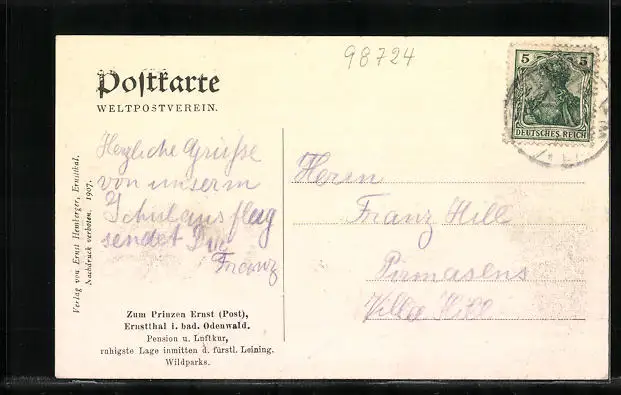 98724
Postkarte
WELTPOSTVEREIN.
5 5
DEUTSCHES REICH
Herzliche Grüße
von unserm
Schulausflug
sendet Dir
Franz
Herrn
Franz Hill
Pirmasens
Villa Hill
Verlag von Ernst Hemberger, Ernstthal.
Nachdruck verboten. 1907.
Zum Prinzen Ernst (Post),
Ernstthal i. bad. Odenwald.
Pension u. Luftkur,
ruhigste Lage inmitten d. fürstl. Leining.
Wildparks.